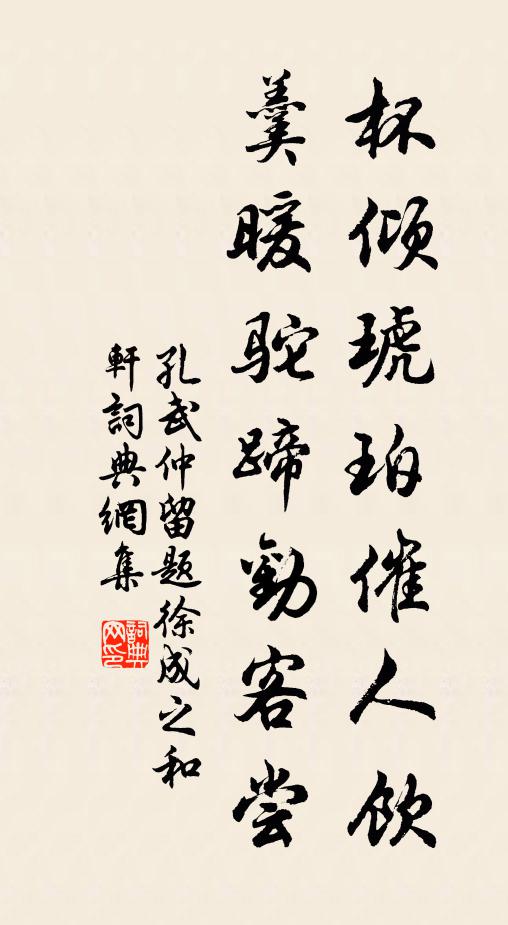 杯倾琥珀催人饮
羹暖驼蹄劝客尝
孔武仲留题徐成之和
軒詞典網集
詞典网印